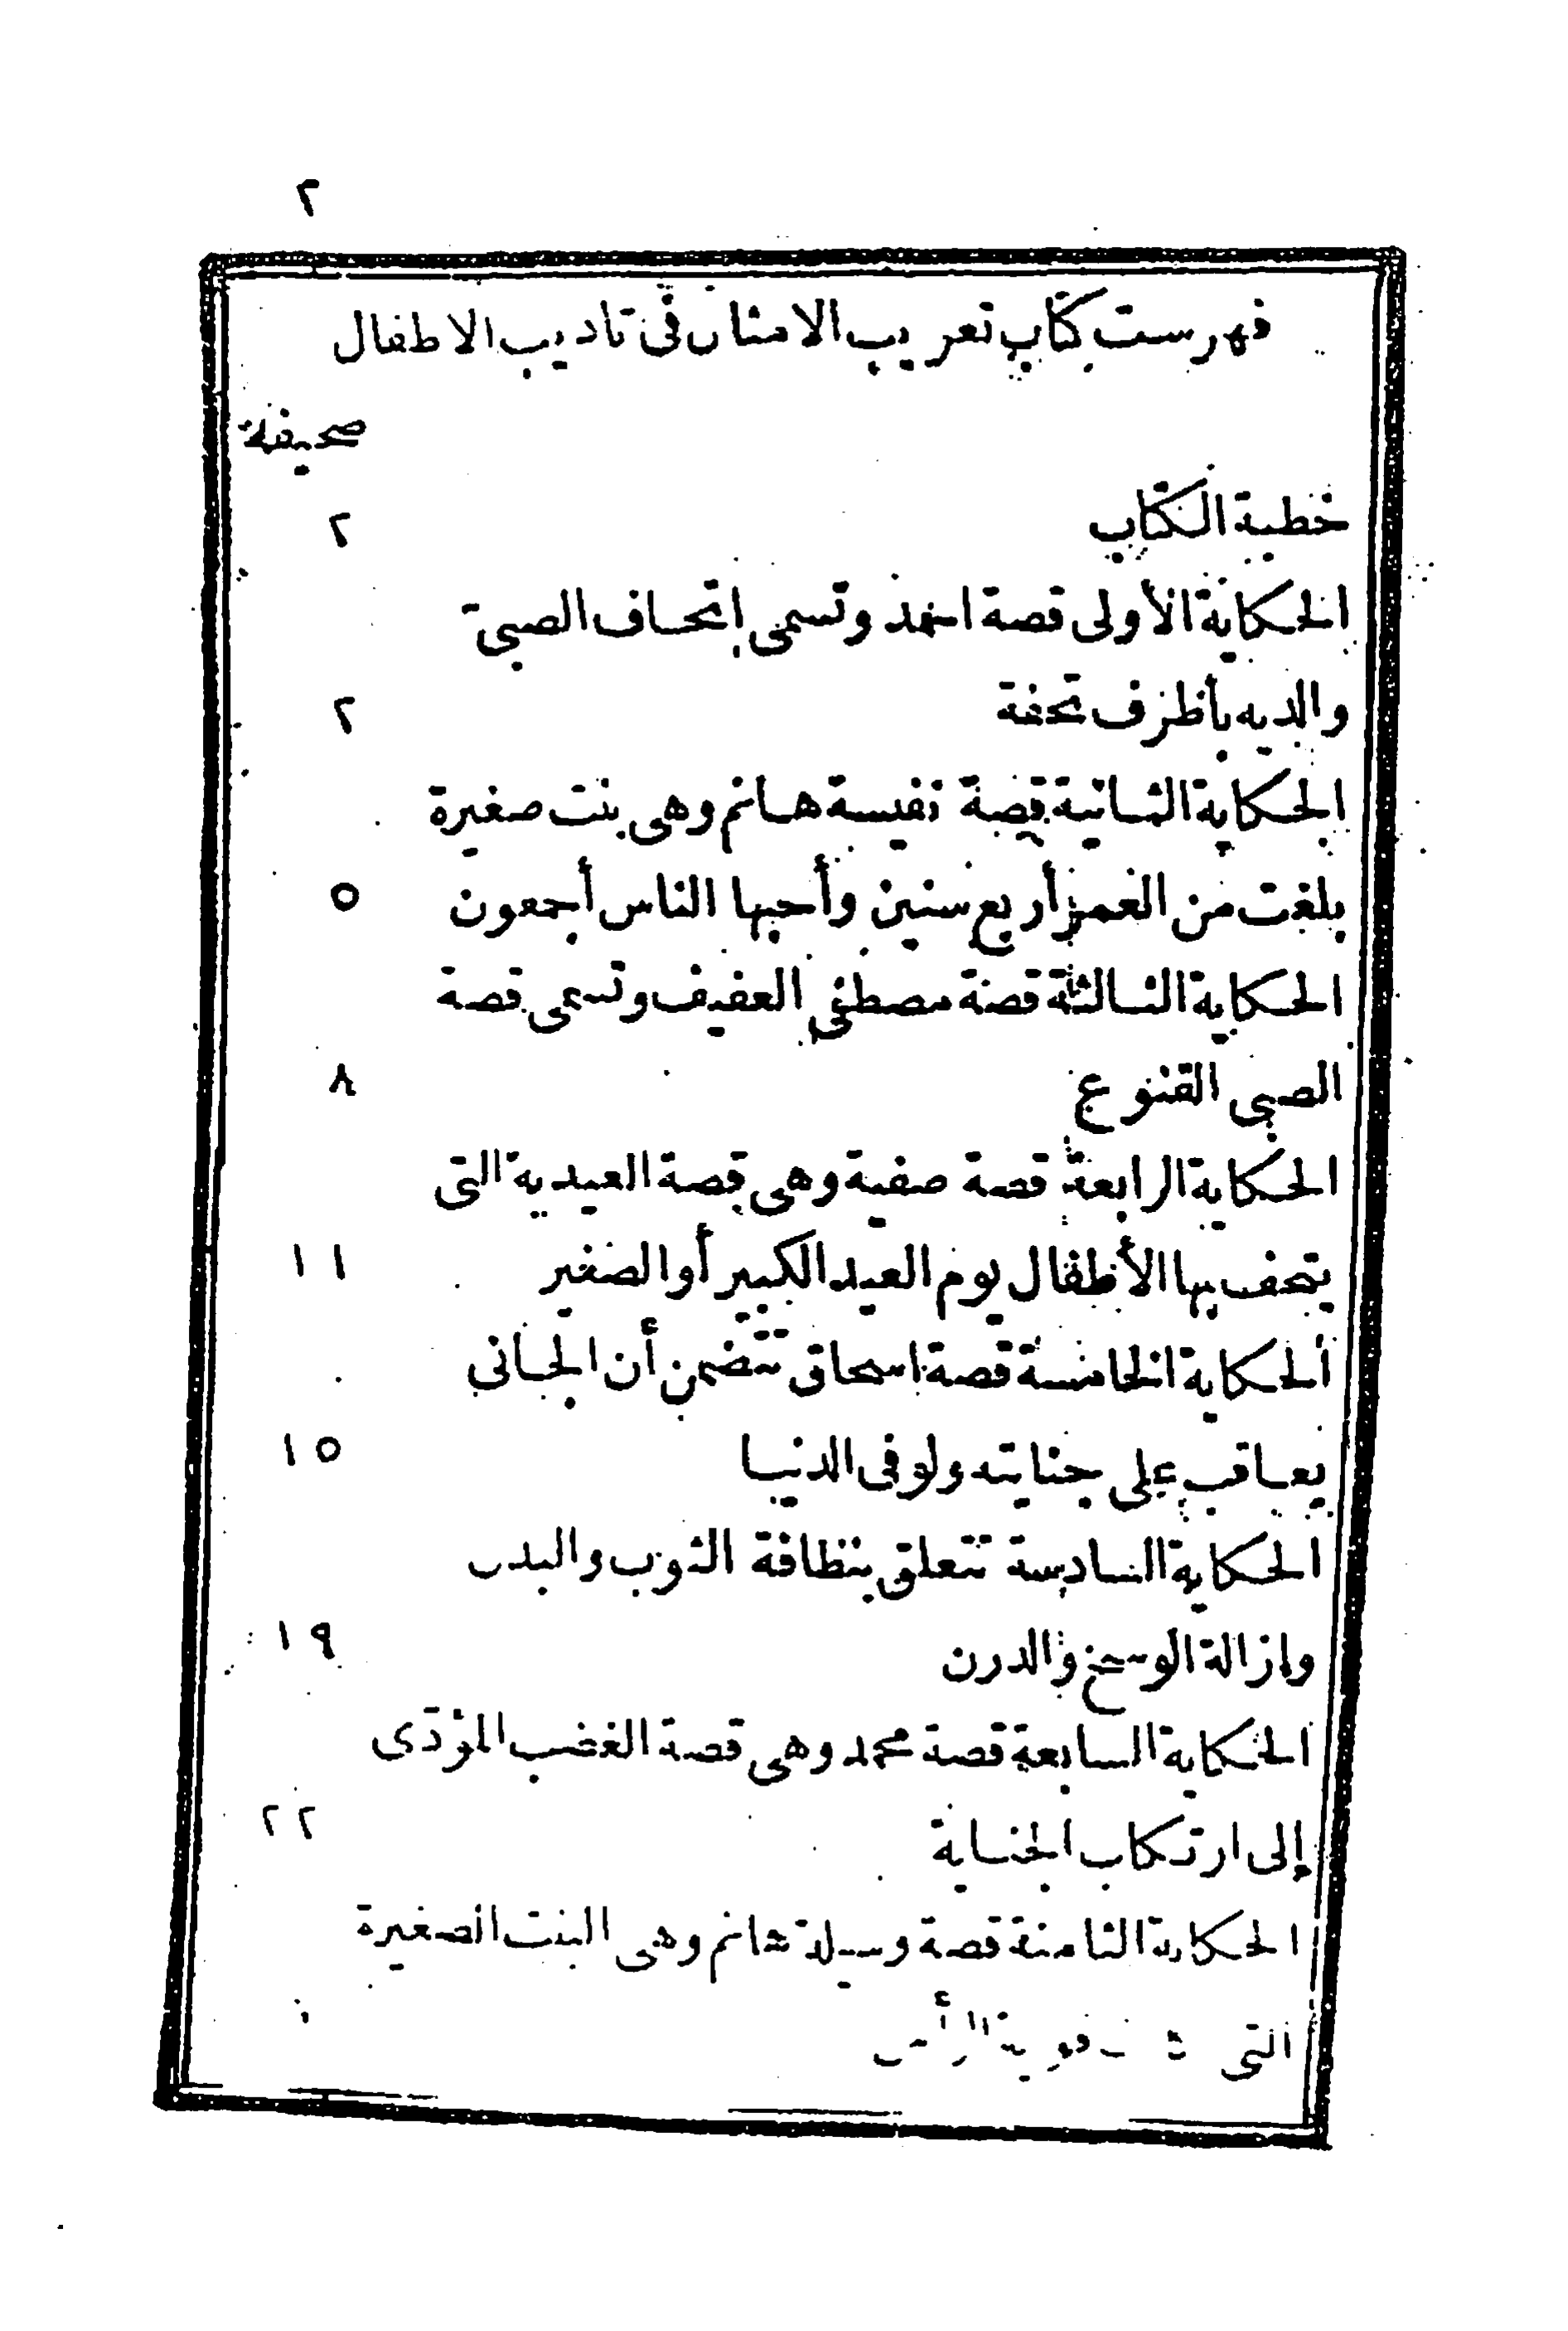 ٢
فهرست كتاب تعريب الامثال فى تاديب الاطفال
صحيفة
خطبة الكتاب ٢
الحكاية الأولى قصة احمد وتسمى إتحاف الصبى
والديه بأظرف تحفة ٢
الحكاية الثانية قصة نفيسة هانم وهى بنت صغيرة
بلغت من العمر أربع سنين وأحبها الناس أجمعون ٥
الحكاية الثالثة قصة مصطفى العفيف وتسمى قصة
الصبى القنوع ٨
الحكاية الرابعة قصة صفية وهى قصة العيدية التى
يتحف بها الأطفال يوم العيد الكبير أوالصغير ١١
ألحكاية الخامسة قصة اسحاق تتضمن أن الجانى
يعاقب على جنايته ولوفى الدنيا ١٥
الحكاية السادسة تتعلق بنظافة الثوب والبدن
وإزالة الوسخ والدرن ١٩
الحكاية السابعة قصة محمد وهى قصة الغضب المؤدى
إلى ارتكاب الجناية ٢٢
الحكاية الثامنة قصة وسيلة هانم وهى البنت الصغيرة
التى قوية الرأس